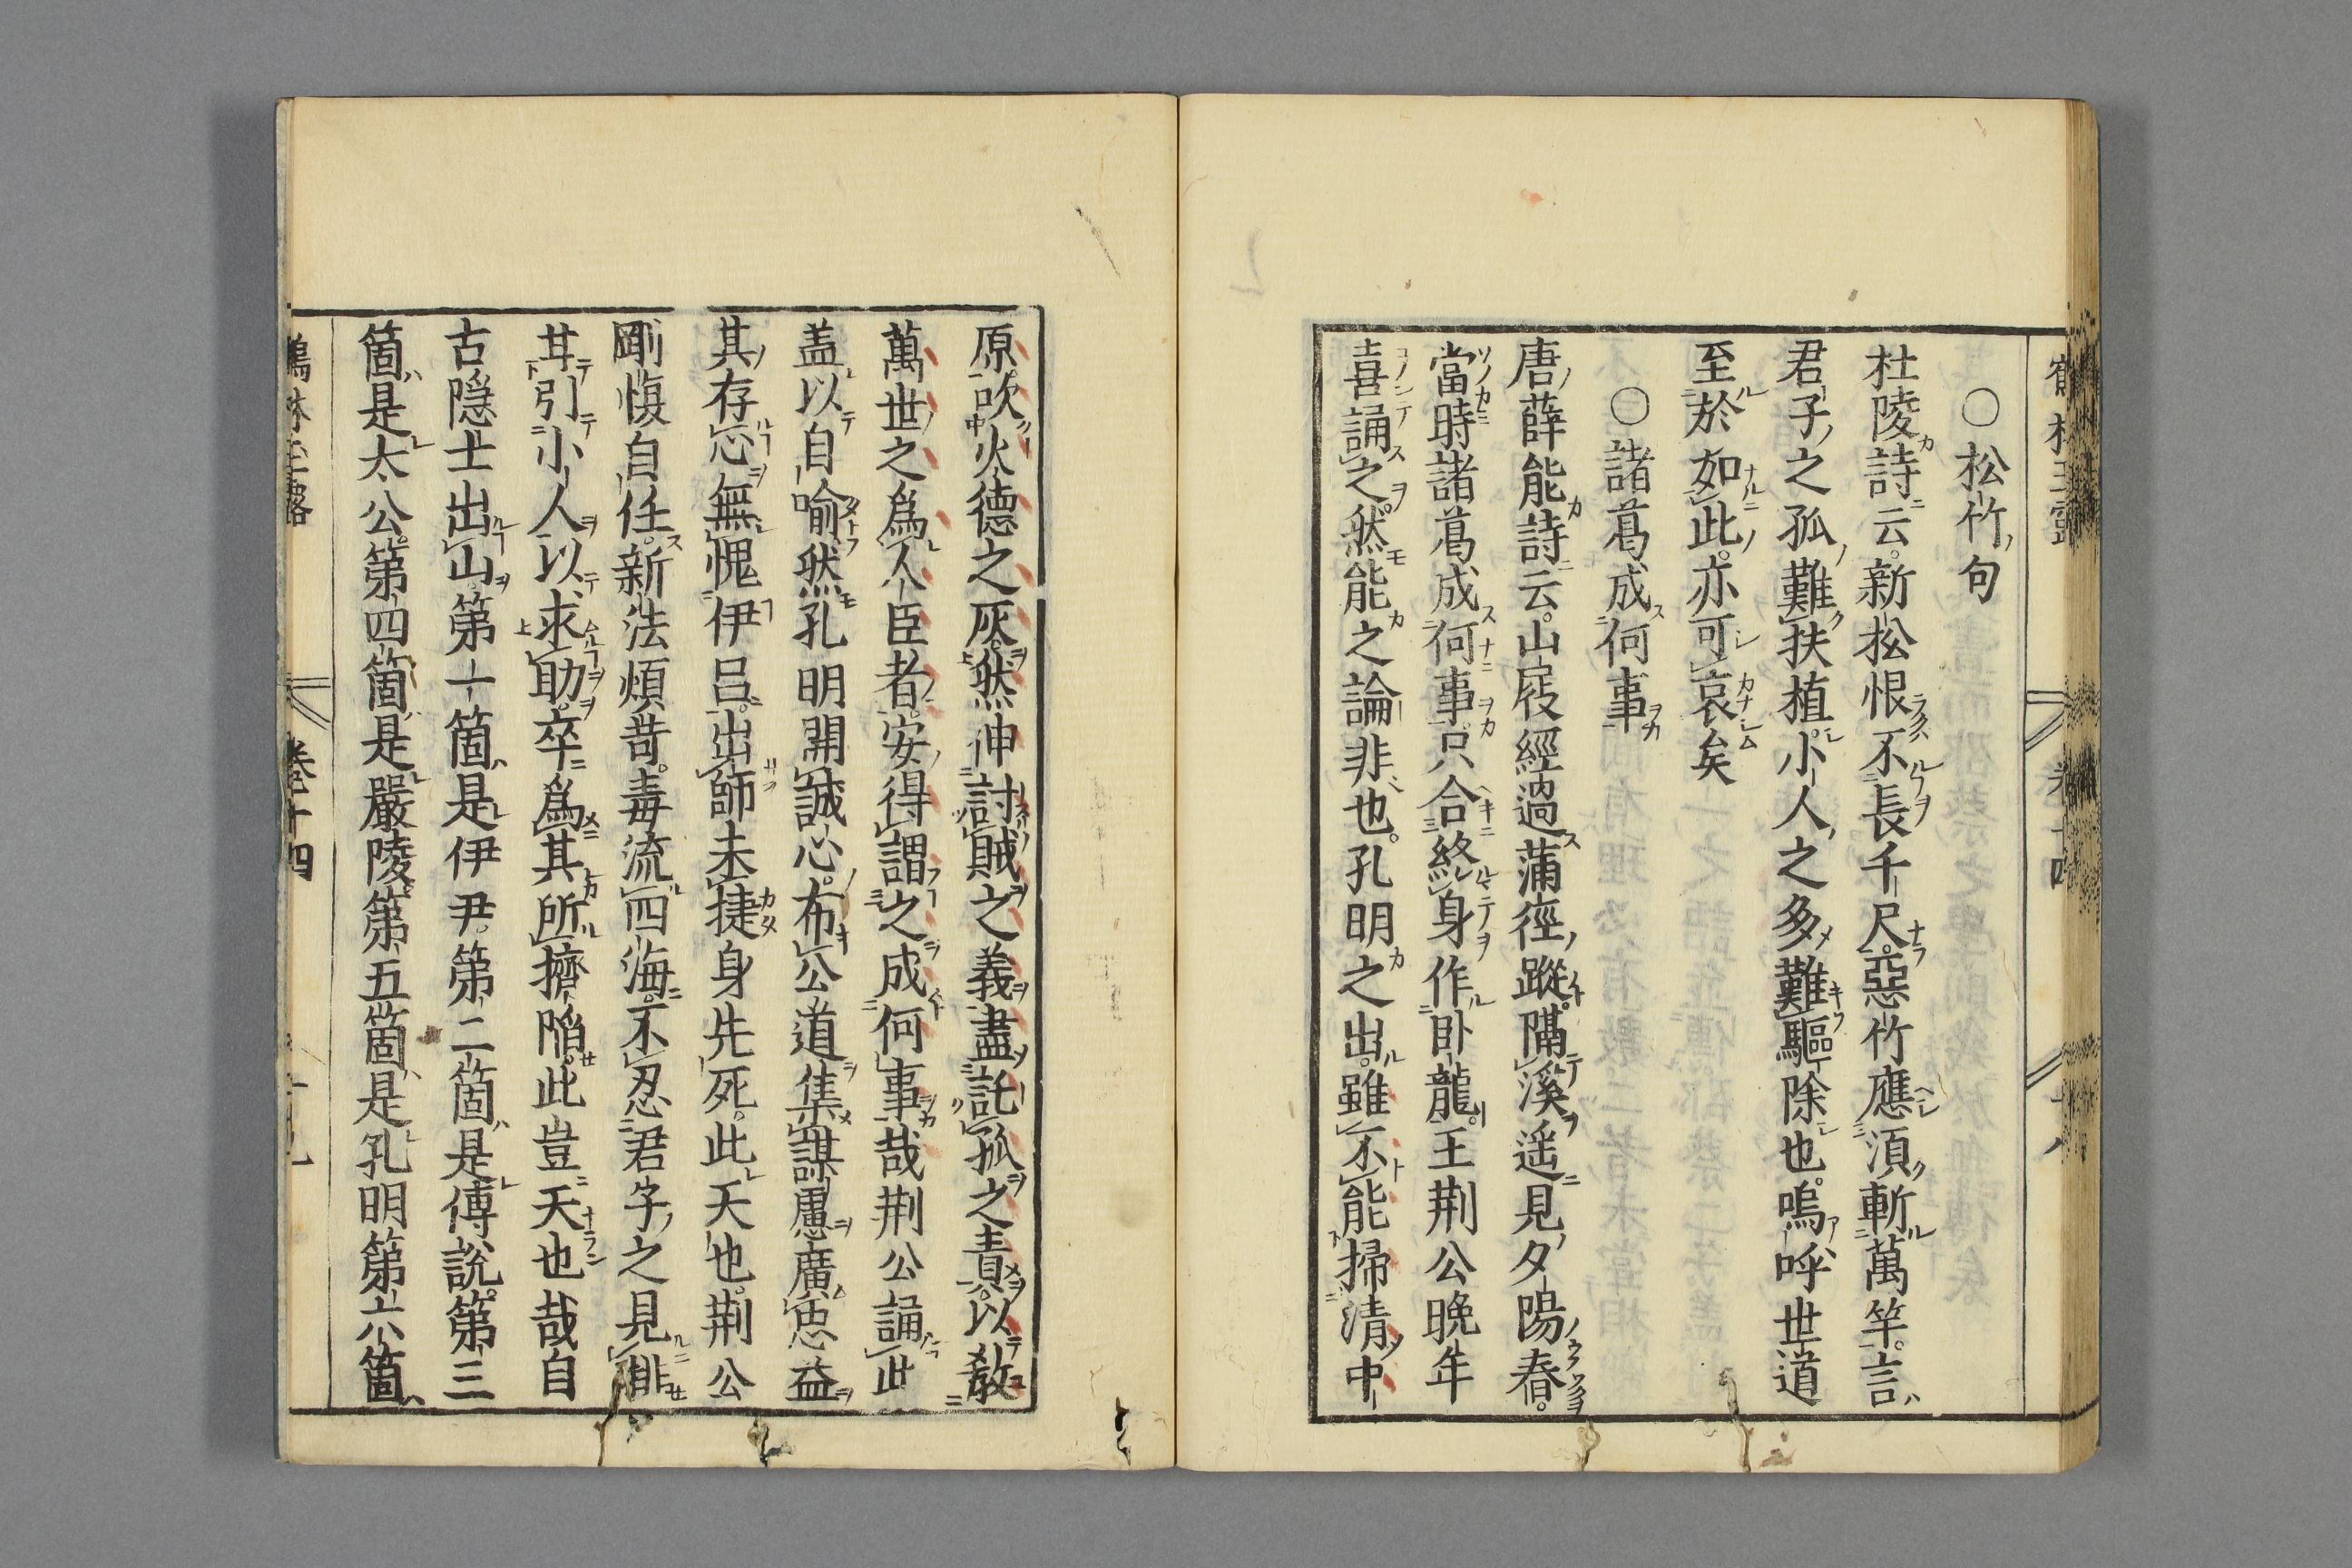 ○松竹句
杜陵詩云。新松恨不長千尺。惡竹應須斬萬竿。言
君子之孤難扶植。小人之多難驅除也。嗚呼世道
至於如此。亦可哀矣
○諸葛成何事
唐薛能詩云。山屐經過蒲徑蹤。隔溪遥見夕陽春。
當時諸葛成何事。只合終身作臥龍。王荆公晩年
喜誦之。然能之論非也。孔明之出。雖不能掃清中
原。吹火德之灰。然伸討賊之義。盡託孤之責。以教
萬世之爲人臣者。安得謂之成何事哉荆公誦此
盖以自喻。然孔明開誠心。布公道集謀慮廣忠益
其存心無愧伊呂。出師未捷身先死。此天也。荆公
剛愎自任。新法煩苛。毒流四海。不忍君子之見排
甘引小人以求助。卒爲其所擠陷。此豈天也哉自
古隱士出山。第一箇是伊尹。第二箇是傅說。第三
箇是太公。第四箇是嚴陵。第五箇是孔明第六箇
卷十四